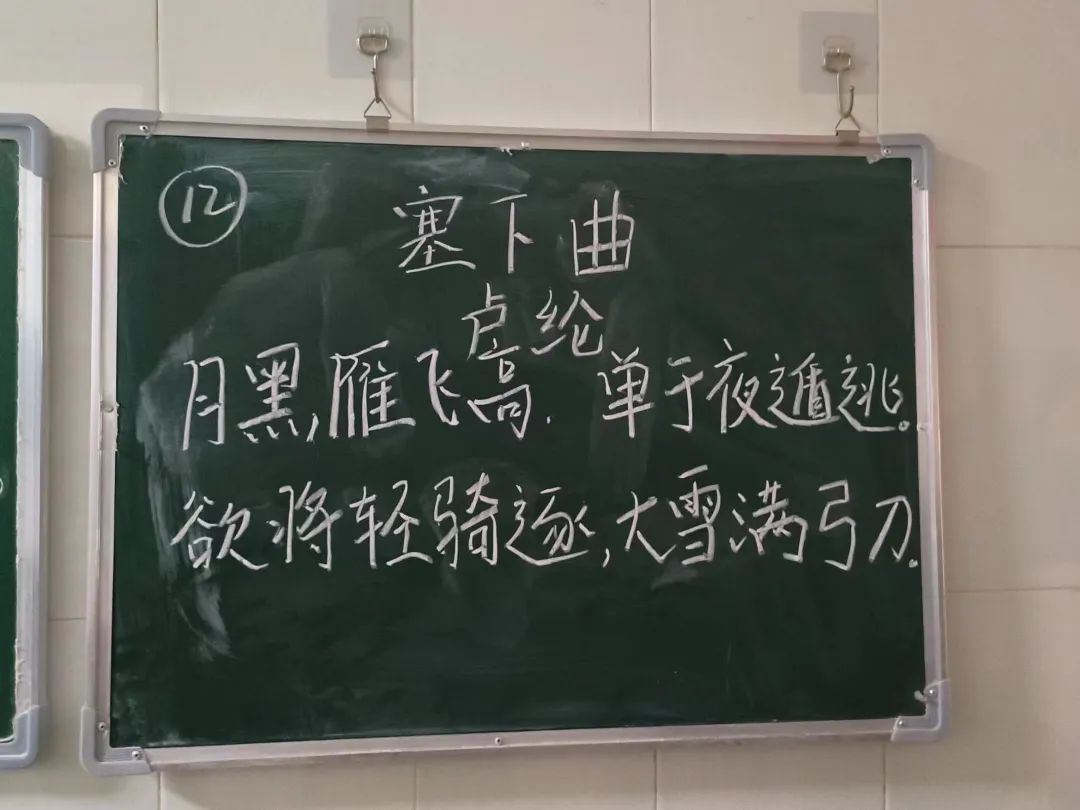 12
塞下曲
卢纶
月黑,雁飞高.单于夜遁逃。
欲将轻骑逐,大雪满弓刀.